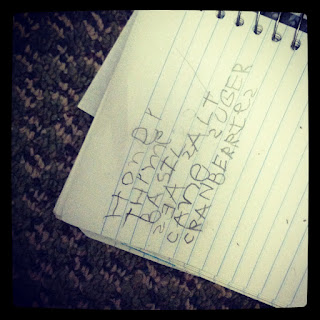 Honey
BASIL
SEA SALT
CANe SUGER
CRANBERRIES